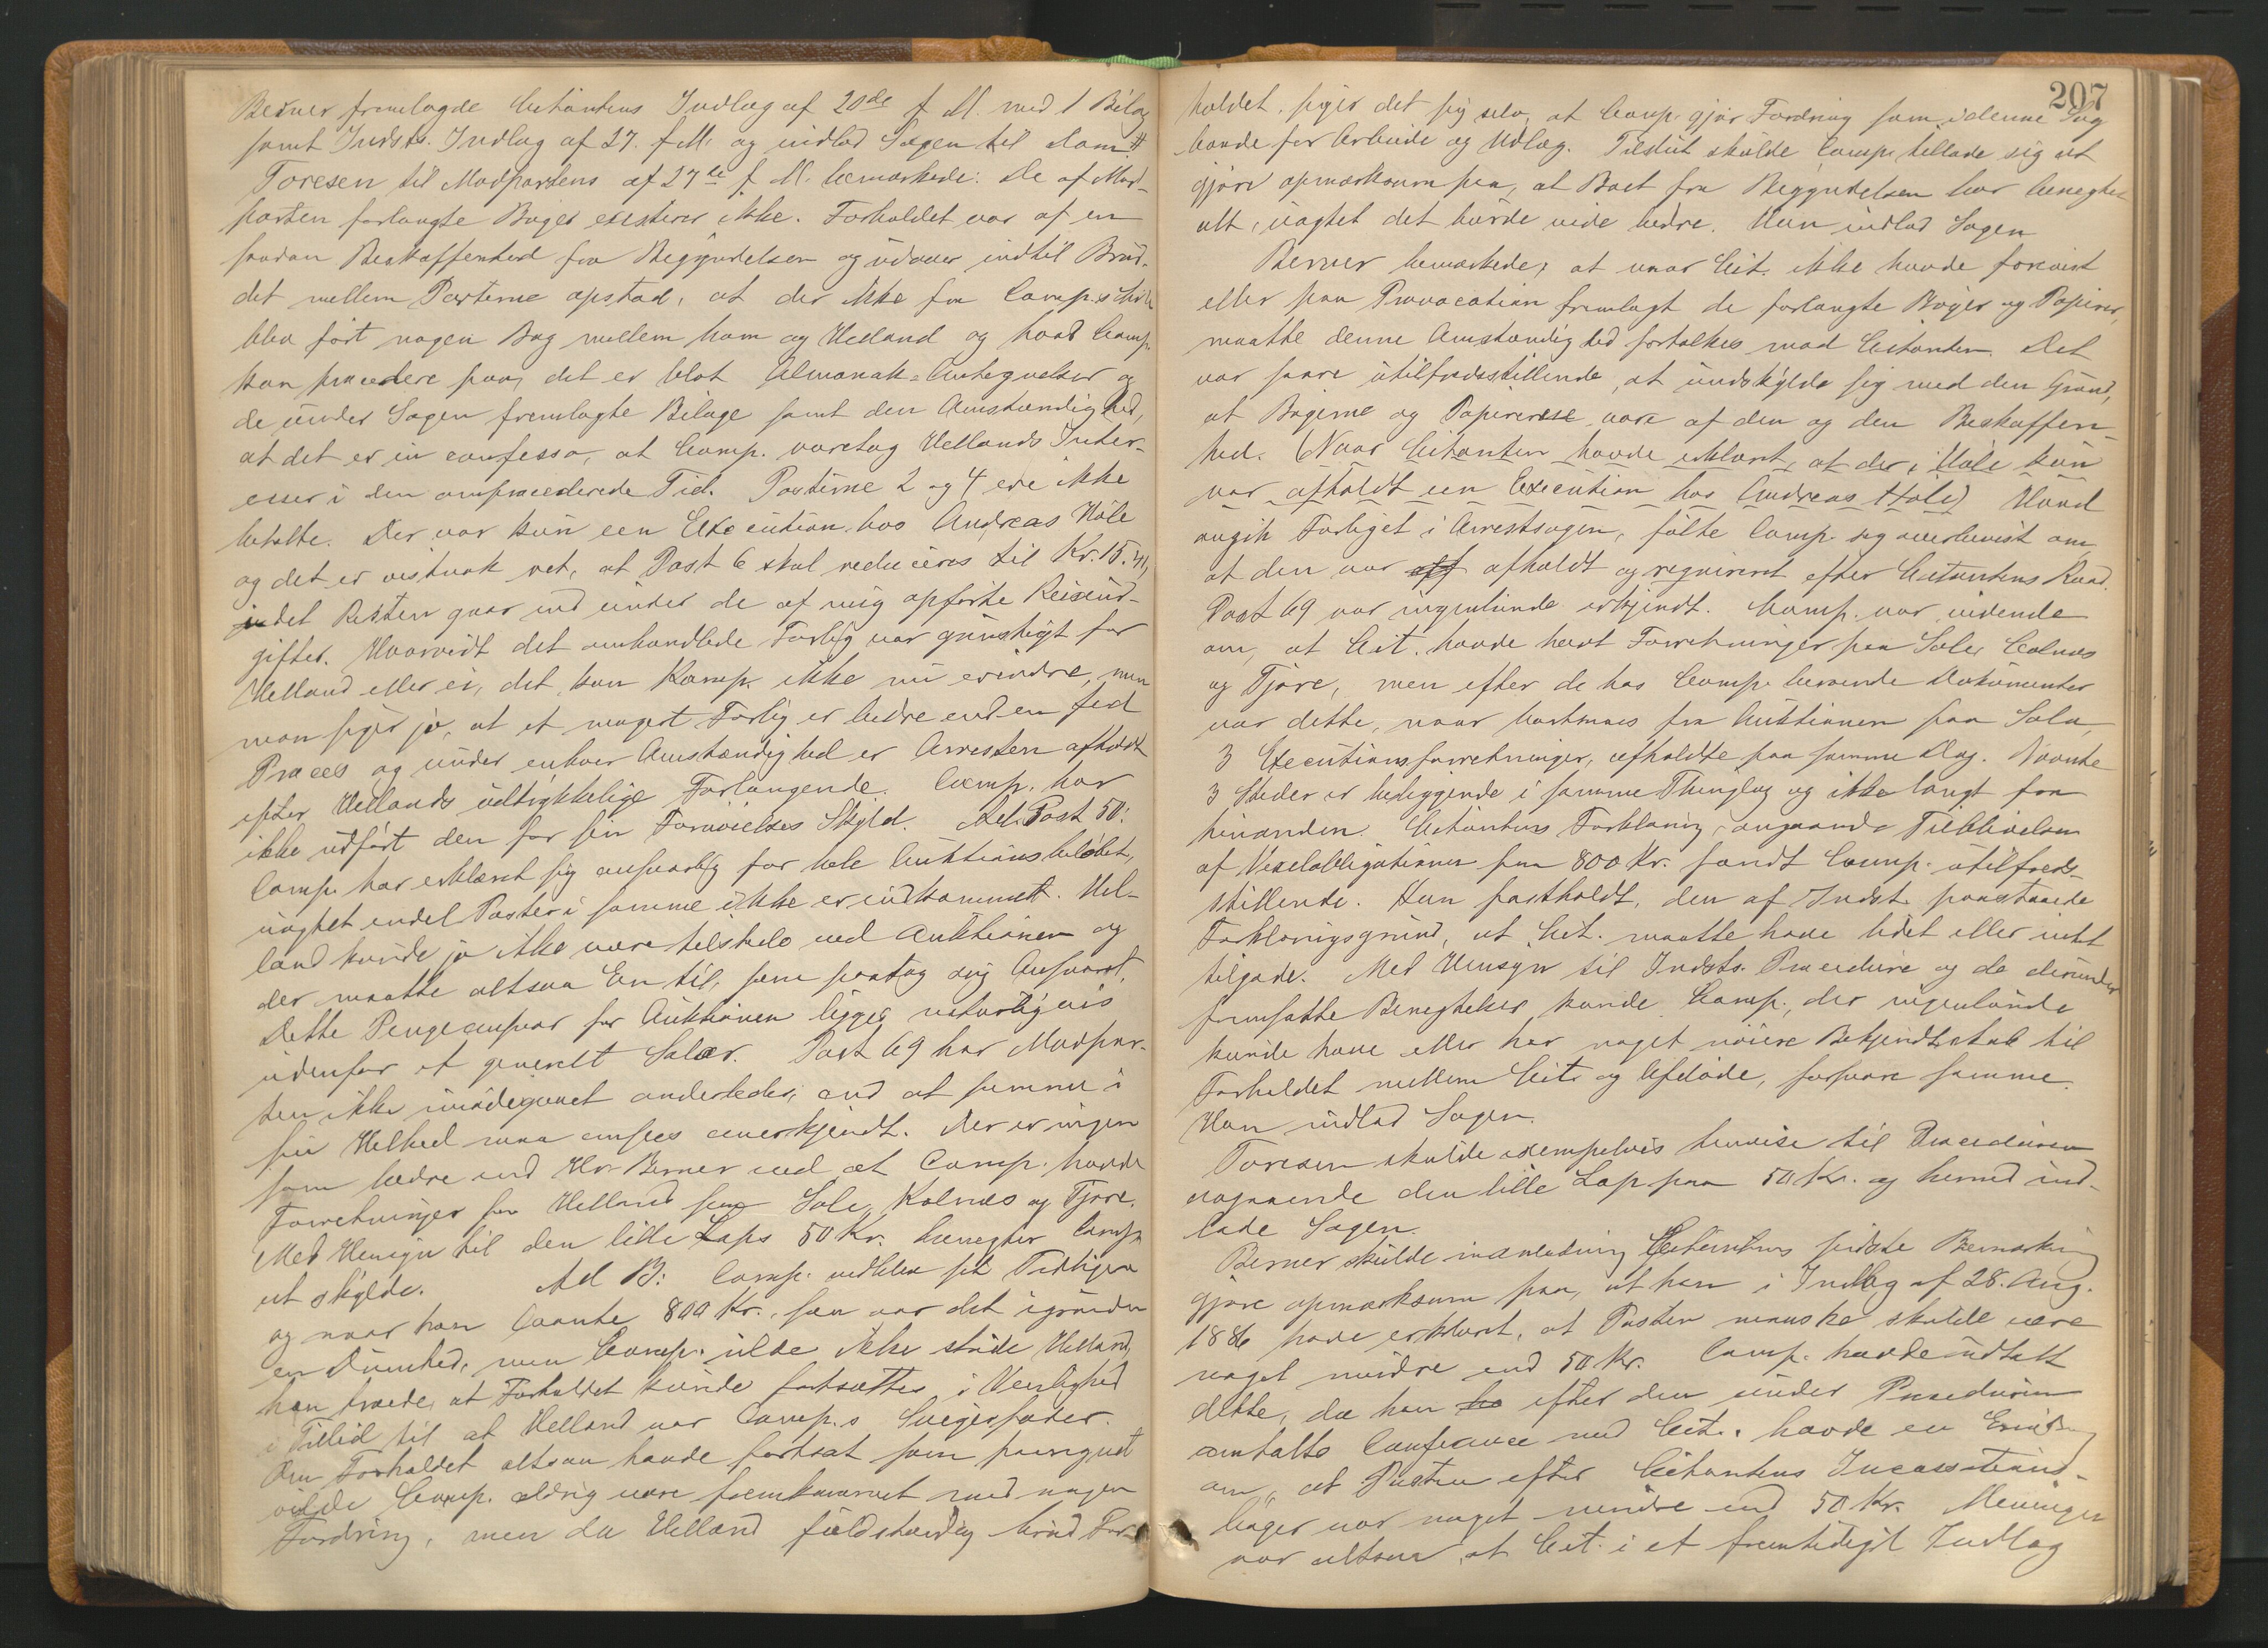 Berner fremlagde Citantens Indlæg af 20de f. M. med 1 Bilag
samt Indst. Indlæg af 27. f. M. og indlod Sagen til Dom. #
Toresen til Modpartens af 27de f. M. bemærkede: De af Mod-
parten forlangte Bøger existerer ikke. Forholdet var af en
saadan Beskaffenhed fra Begyndelsen og udover indtil Brud-
det mellem Parterne opstod, at der ikke fra Comp.s Side
blev ført nogen Bog mellem ham og Helland og hvad Comp.
kan procedere paa, det er blot Almanak-Antegnelser og
de under Sagen fremlagte Bilage samt den Omstændighed,
at det er in confesso, at Comp. varetog Hellands Inter-
esser i den omprocederede Tid. Posterne 2 og 4 ere ikke
betalte. Der var kun een Execution hos Andreas Høle
og det er vistnok ret, at Post 6 skal reduceres til Kr. 15.41,
idet Resten gaar ind under de af mig opførte Reiseud-
gifter. Hvorvidt det omhandlede Forlig var gunstigt for
Helland eller ei, det kan Komp. ikke nu erindre, men
man siger jo, at et magert Forlig er bedre end en fed
Proces og under enhver Omstændighed er Arresten afholdt
efter Hellands udtrykkelige Forlangende. Comp. har
ikke udført den for sin Fornøielses Skyld. Ad. Post 50:
Comp. har erklæret sig ansvarlig for hele Auktionsbeløbet,
uagtet endel Poster i samme ikke er indkommet. Hel-
land kunde jo ikke være tilstede ved Auktionen og
der maatte altsaa En til, som paatog sig Ansvaret.
Dette Pengeansvar for Auktionen ligger naturligvis
udenfor et generelt Salær. Post 69 har Modpar-
ten ikke imødegaaet anderledes, end at samme i
sin Helhed maa ansees anerkjendt. Der er ingen
som bedre end Hr. Berner ved at Comp. havde
Forretninger for Helland paa Sole, Kolnæs og Tjøre.
Med Hensyn til den lille Laps 50 Kr. benegter Comp.
at skylde. Ad B: Comp. vedblev sit Tidligere
og naar han laante 800 Kr., saa var det igrunden
en Dumhed, men Comp. vilde ikke støde Helland,
han troede, at Forholdet kunde fortsættes i Venlighed
i Tillid til at Helland var Comp.s Svigerfader.
Om Forholdet altsaa havde fortsat som paaregnet
vilde Comp. aldrig være fremkommet med nogen
Fordring, men da Helland fuldstændig brød For-
207
holdet, siger det sig selv, at Comp. gjør Fordring som i denne Sag
baade for Arbeide og Udlæg. Tilslut skulde Comp. tillade sig at
gjøre opmærksom paa, at Boet fra Begyndelsen har benegtet
alt, uagtet det burde vide bedre. Han indlod Sagen
Berner bemærkede, at naar Cit. ikke havde forevist
eller paa Provocation fremlagt de forlangte Bøger og Papirer,
maatte denne Omstændighed fortolkes mod Citanten. Det
var saare utilfredsstillende, at undskylde sig med den Grund,
at Bøgerne og Papirerne vare af den og den Beskaffen-
hed. (Naar Citanten havde erklæret, at der i Høle kun
var afholdt een Execution hos Andreas Høle) Hvad
angik Forliget i Arrestsagen, følte Comp. sig overbevist om,
at den var aff afholdt og requireret efter Citantens Raad.
Post 69 var ingenlunde erkjendt. Comp. var vidende
om, at Cit. havde havt Forretninger paa Sole, Colnæs
og Tjøre, men efter de hos Comp. beroende Dokumenter
var dette, naar bortsees fra Auktionen paa Sola,
3 Executionsforretninger, afholdte paa samme Dag. Nævnte
3 Steder er beliggende i samme Thinglag og ikke langt fra
hinanden. Citantens Forklaring angaaende Tilblivelsen
af Vexelobligationen paa 800 Kr. fandt Comp. utilfreds-
stillende. Han fastholdt, den af Indst. paastaaede
Forklaringsgrund, at Cit. maatte have lidet eller intet
tilgode. Med Hensyn til Indsts. Procedure og de derunder
fremsatte Benegtelser kunde Comp., der ingenlunde
kunde have eller har noget nøiere Bekjendtskab til
Forholdet mellem Cit. og Afdøde, forsvare samme.
Han indlod Sagen.
Toresen skulde exempelvis henvise til Proceduren
angaaende den lille Lap paa 50 Kr. og hermed ind-
lade Sagen.
Berner skulde i Anledning Citantens sidste Bemærkning
gjøre opmærksom paa, at han i Indlæg af 28. Aug.
1886 havde erklæret, at Posten maaske skulde være
noget mindre end 50 Kr. Comp. havde udtalt
dette, da han ha efter den under Proceduren
omtalte Conferance med Cit. havde en Erindring
om, at Posten efter Citantens Incassations-
bøger var noget mindre end 50 Kr. Meningen
var altsaa, at Cit. i et fremtidigt Indlæg